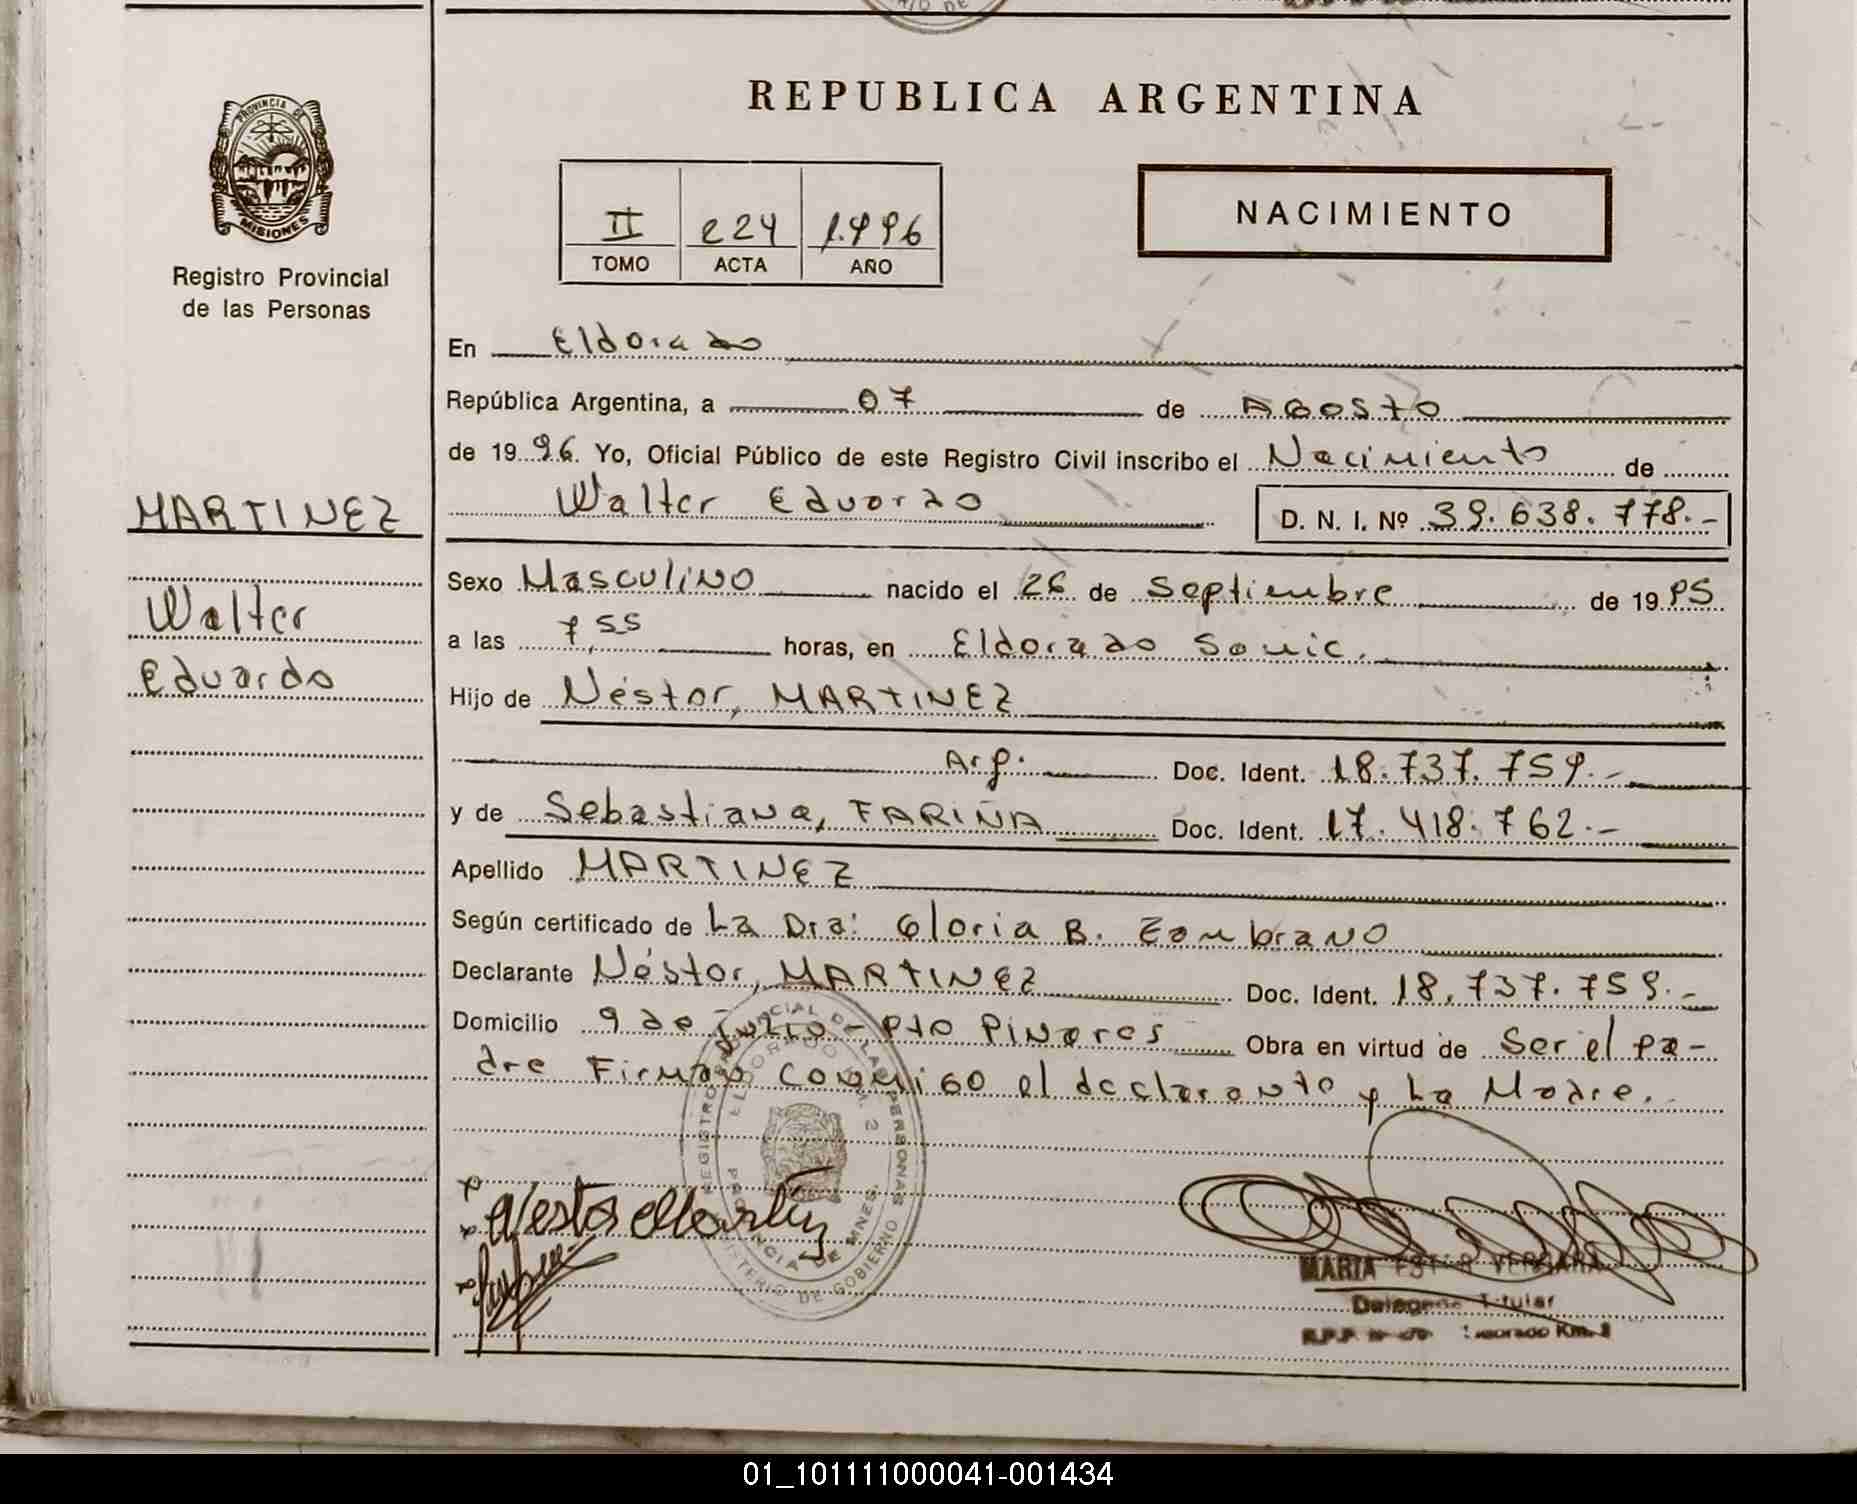 PROVINCIA DE
MISIONES
Registro Provincial
de las Personas
REPUBLICA ARGENTINA
II 224 1.996
TOMO ACTA AÑO
NACIMIENTO
En Eldorado
República Argentina, a 07 de Agosto
de 1996. Yo, Oficial Público de este Registro Civil inscribo el Nacimiento de
Walter Eduardo D. N. I. Nº 39.638.778.-
MARTINEZ
Walter
Eduardo
Sexo Masculino nacido el 26 de Septiembre de 1995
a las 7,55 horas, en Eldorado
Hijo de Néstor, MARTINEZ
Arg. Doc. Ident. 18.737.759.-
y de Sebastiana, FARIÑA Doc. Ident. 17.418.762.-
Apellido MARTINEZ
Según certificado de La Dra: Gloria B. Zambrano
Declarante Néstor, MARTINEZ Doc. Ident. 18.737.759.-
Domicilio 9 de Julio - Pto Pinares Obra en virtud de Ser el pa-
dre Firman Conmigo el declarante y La Madre.
REGISTRO PROVINCIAL DE LAS PERSONAS
ELDORADO KM. 2
PROVINCIA DE MNES.
MINISTERIO DE GOBIERNO
Nestor Martinez
MARIA ESTER VERGARA
Delegada Titular
Eldorado Km. 2
01_101111000041-001434